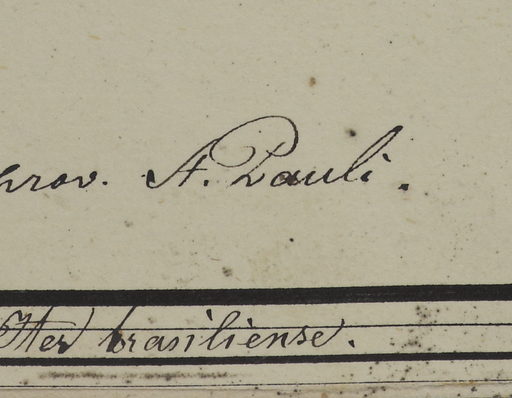 prov. St. Pauli.
Iter brasiliense.